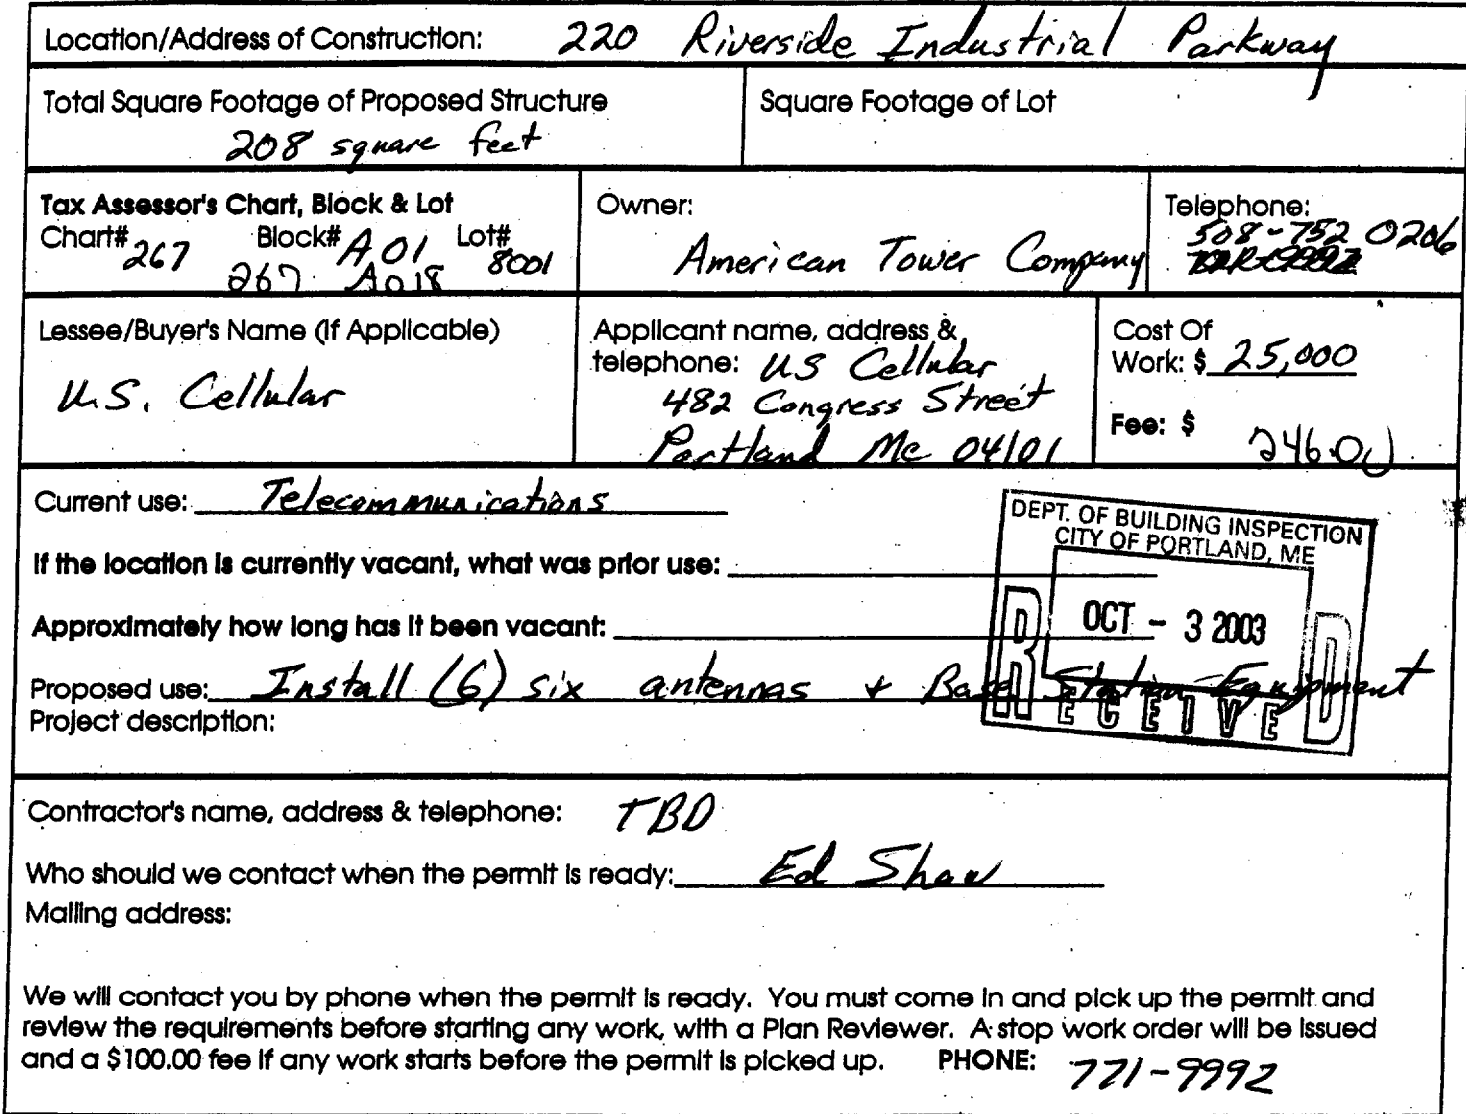 Location/Address of Construction: 220 Riverside Industrial Parkway
Total Square Footage of Proposed Structure
208 square feet
Square Footage of Lot
Tax Assessor's Chart, Block & Lot
Chart# 267 Block# A01 Lot# 8001
267 A018
Owner:
American Tower Company
Telephone:
508-752 0206
Lessee/Buyer's Name (If Applicable)
U.S. Cellular
Applicant name, address &
telephone: US Cellular
482 Congress Street
Portland Me 04101
Cost Of
Work: $ 25,000
Fee: $ 246.00
Current use: Telecommunications
If the location is currently vacant, what was prior use:
Approximately how long has it been vacant:
Proposed use: Install (6) six antennas + Base Station Equipment
Project description:
DEPT. OF BUILDING INSPECTION
CITY OF PORTLAND, ME
OCT - 3 2003
RECEIVED
Contractor's name, address & telephone: TBD
Who should we contact when the permit is ready: Ed Shaw
Mailing address:
We will contact you by phone when the permit is ready. You must come in and pick up the permit and
review the requirements before starting any work, with a Plan Reviewer. A stop work order will be issued
and a $100.00 fee if any work starts before the permit is picked up. PHONE: 771-9992